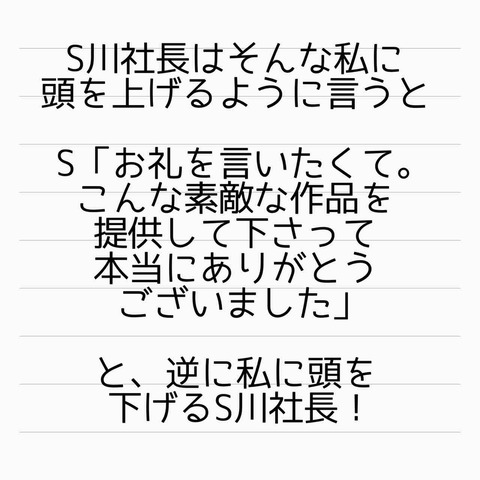 S川社長はそんな私に
頭を上げるように言うと
S「お礼を言いたくて。
こんな素敵な作品を
提供して下さって
本当にありがとう
ございました」
と、逆に私に頭を
下げるS川社長！